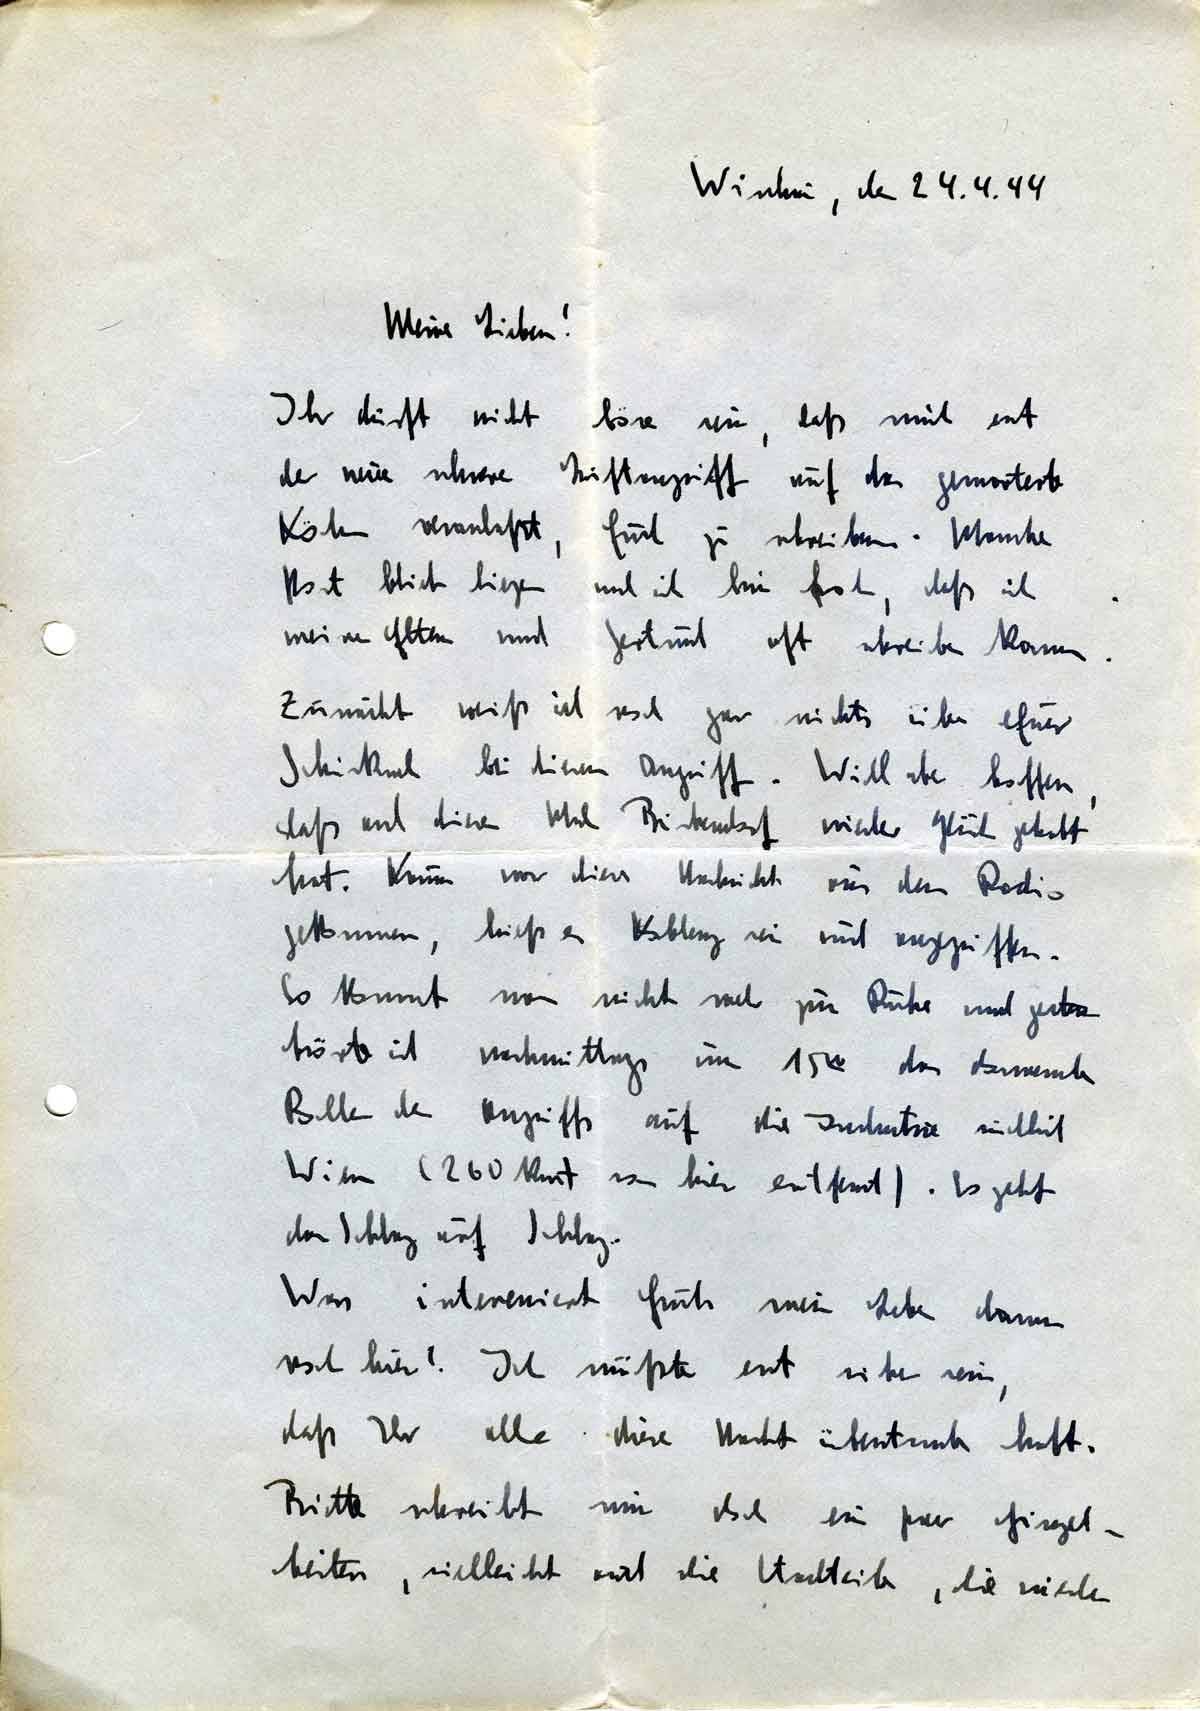 Wischau, den 24.4.44
Meine Lieben!
Ihr dürft nicht böse sein, daß mich erst
der neue schwere Luftangriff auf das gemarterte
Köln veranlaßt, Euch zu schreiben. Manche
Post blieb liegen und ich bin froh, daß ich
meinen Eltern und Gertrud oft schreiben kann.
Zunächst weiß ich noch gar nichts über Euer
Schicksal bei diesem Angriff. Will aber hoffen,
daß auch dieses Mal Bickendorf wieder Glück gehabt
hat. Kaum war diese Nachricht aus dem Radio
gekommen, hieß es Koblenz sei auch angegriffen.
So kommt man nicht mehr zur Ruhe und gestern
hörte ich nachmittags um 15 das donnernde
Rollen des Angriffs auf die Industrie südlich
Wien (260 km von hier entfernt). Es geht
da Schlag auf Schlag.
Was interessiert Euch mein Leben dann
noch hier! Ich müßte erst sicher sein,
daß Ihr alle diese Nacht überstanden habt.
Bitte schreibt mir doch ein paar Einzel-
heiten, vielleicht auch die Stadtteile, die wieder